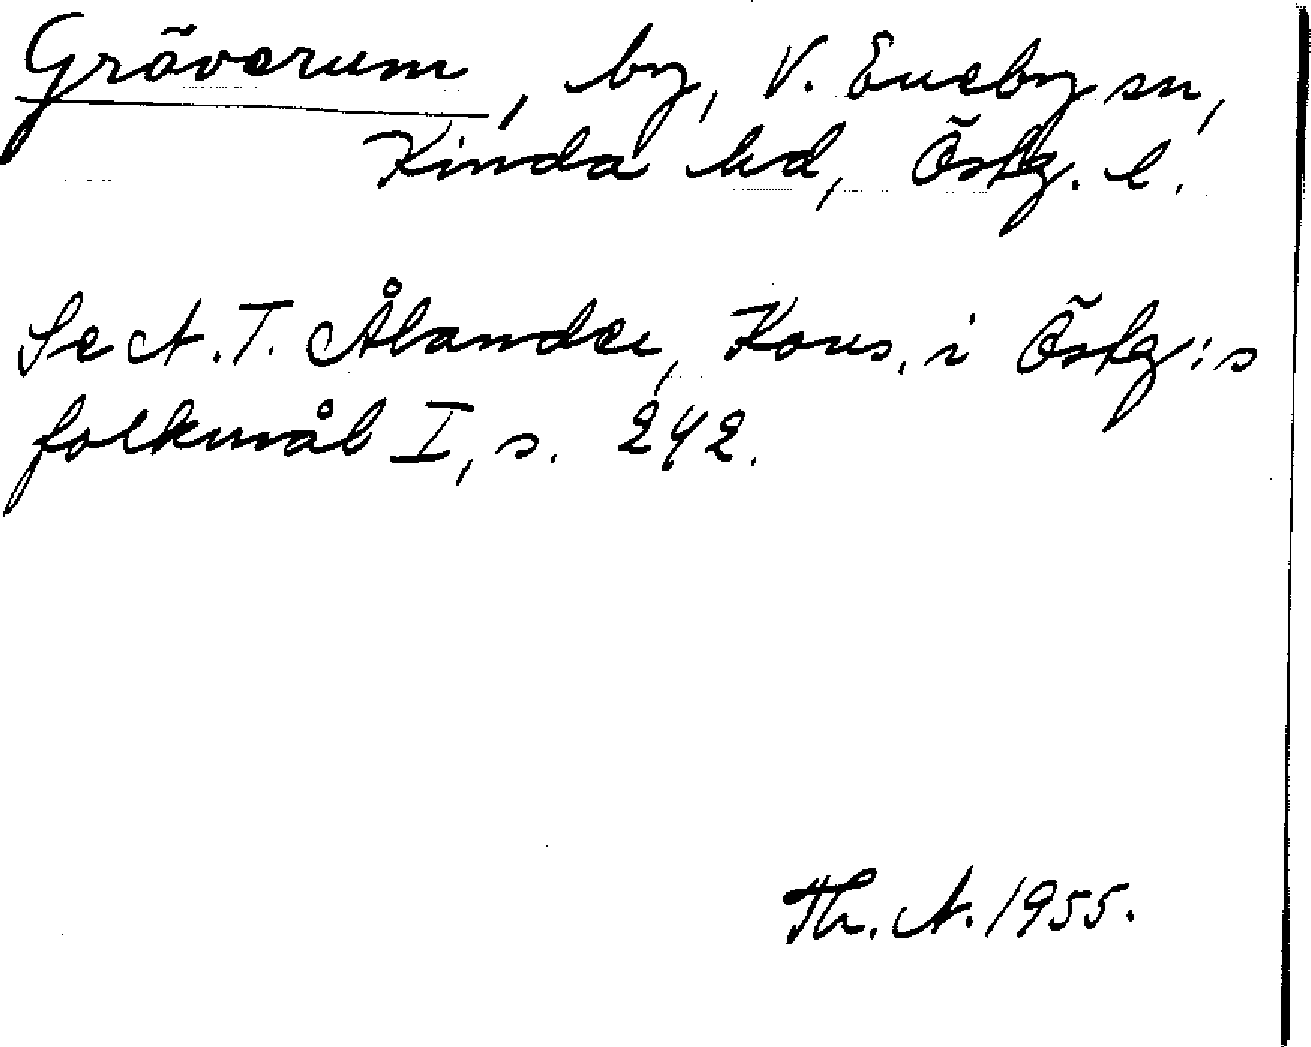 Gräverum, by, V. Eneby sn,
Kinda hd, Östg. l.
Se A.T. Ålander, Kons. i Östg:s
folkmål I, s. 242.
Th. A. 1955.